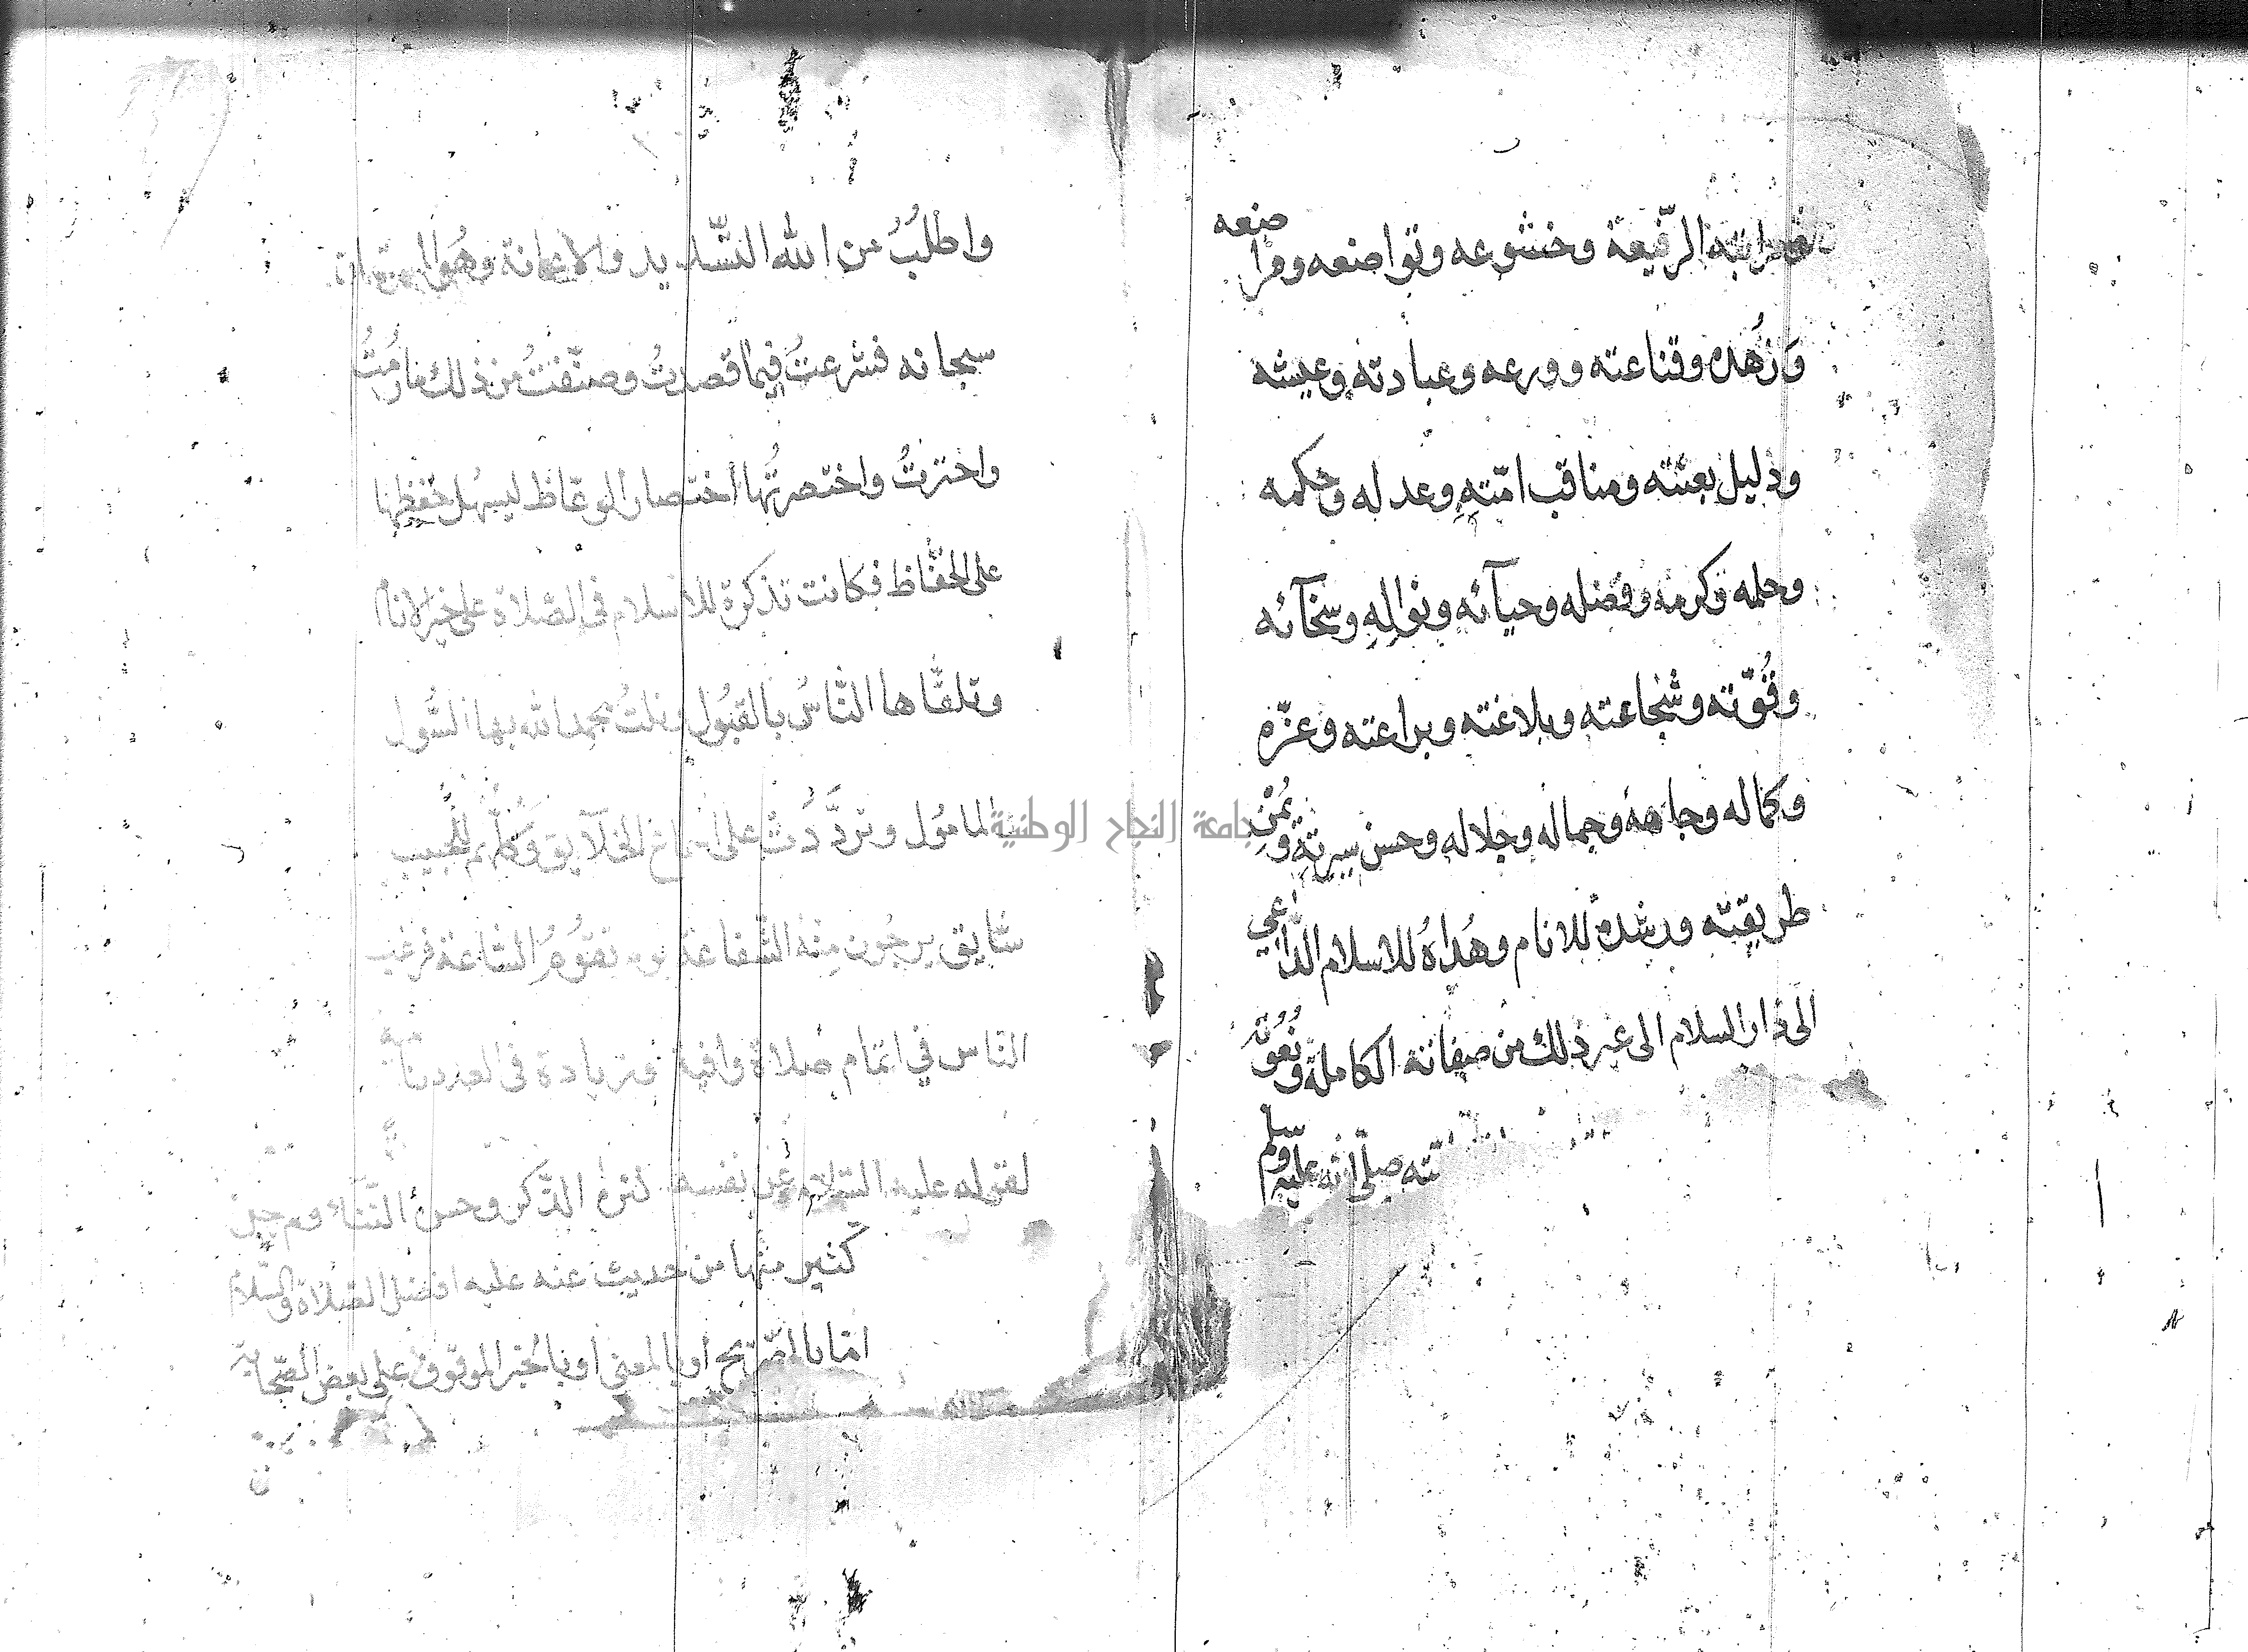 ومراتبه الرّفيعة وخشوعه وتواضعه وما صنعه
وزُهده وقناعته وورعه وعبادته وعيشه
ودليل بعثته ومناقب امّتهِ وعدله وحكمه
وحلمه وكرمه وفضله وحيآئه ونوالهِ وسخآئه
وقُوّته وشجاعته وبلاغته وبراعته وعزّه
وكماله وجاهه وجماله وجلاله وحسن سيرتهِ ويُمْنِ
طريقته ورشده للانام وهُداهُ للاسلام الدّاعي
الى دار السلام الى غير ذلك من صفاته الكاملة ونُعُو
ته صلّى الله عليه وسلّم
واطلبُ من الله التسّديد والاعانة وهُو
سبحانه فشرعتُ فيما قصدتُ وصنّفتُ من ذلك مارُمْتُ
واخترتُ واختصرتُها اختصار الوعّاظ ليسهُل حفظها
على الحفّاظ فكانت تذكرة للاسلام فى الصّلاة على خير الانام
وتلقّاها النّاسُ بالقبُول ونلتُ بحمد الله بها السُّول
المامُول وتردّدتْ على الخلآيق وكلّهُم للحبيب
شايق يرجُون مِنْه الشّفاعة يوم تقوُمُ السّاعة فرغب
الناس في اتمام صلاة وافية وزيادة فى العدد
لقوله عليه السّلام عن نفسه الذّكر وحسن الثّنآء
كثير منها من حديث عنه عليه افضل الصّلاة والسّلام
امّا بالصّريح او بالمعنى او بالخبر الموقوف على بعض الصّحابة
جامعة النجاح الوطنية